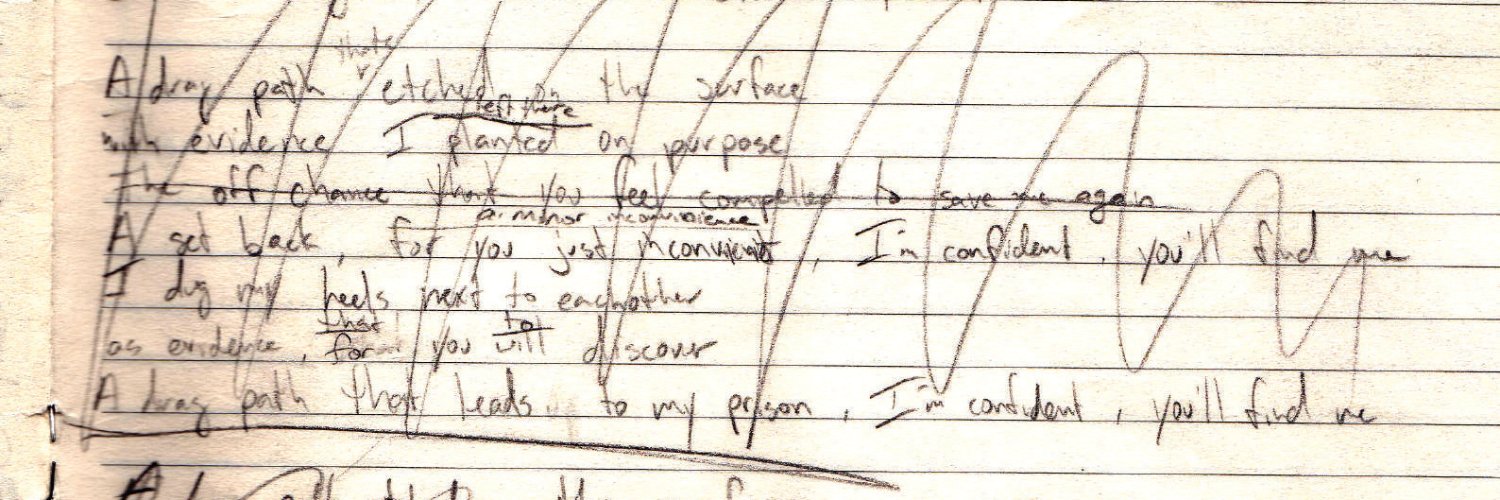 A drag path that's etched on the surface
with evidence I planted left there on purpose
the off chance that you feel compelled to save me again
a minor inconvenience
A set back, for you just inconvenient, I'm confident, you'll find me
I dug my heels next to eachother
that to
as evidence, for you will discover
A drag path that leads to my prison, I'm confident, you'll find me